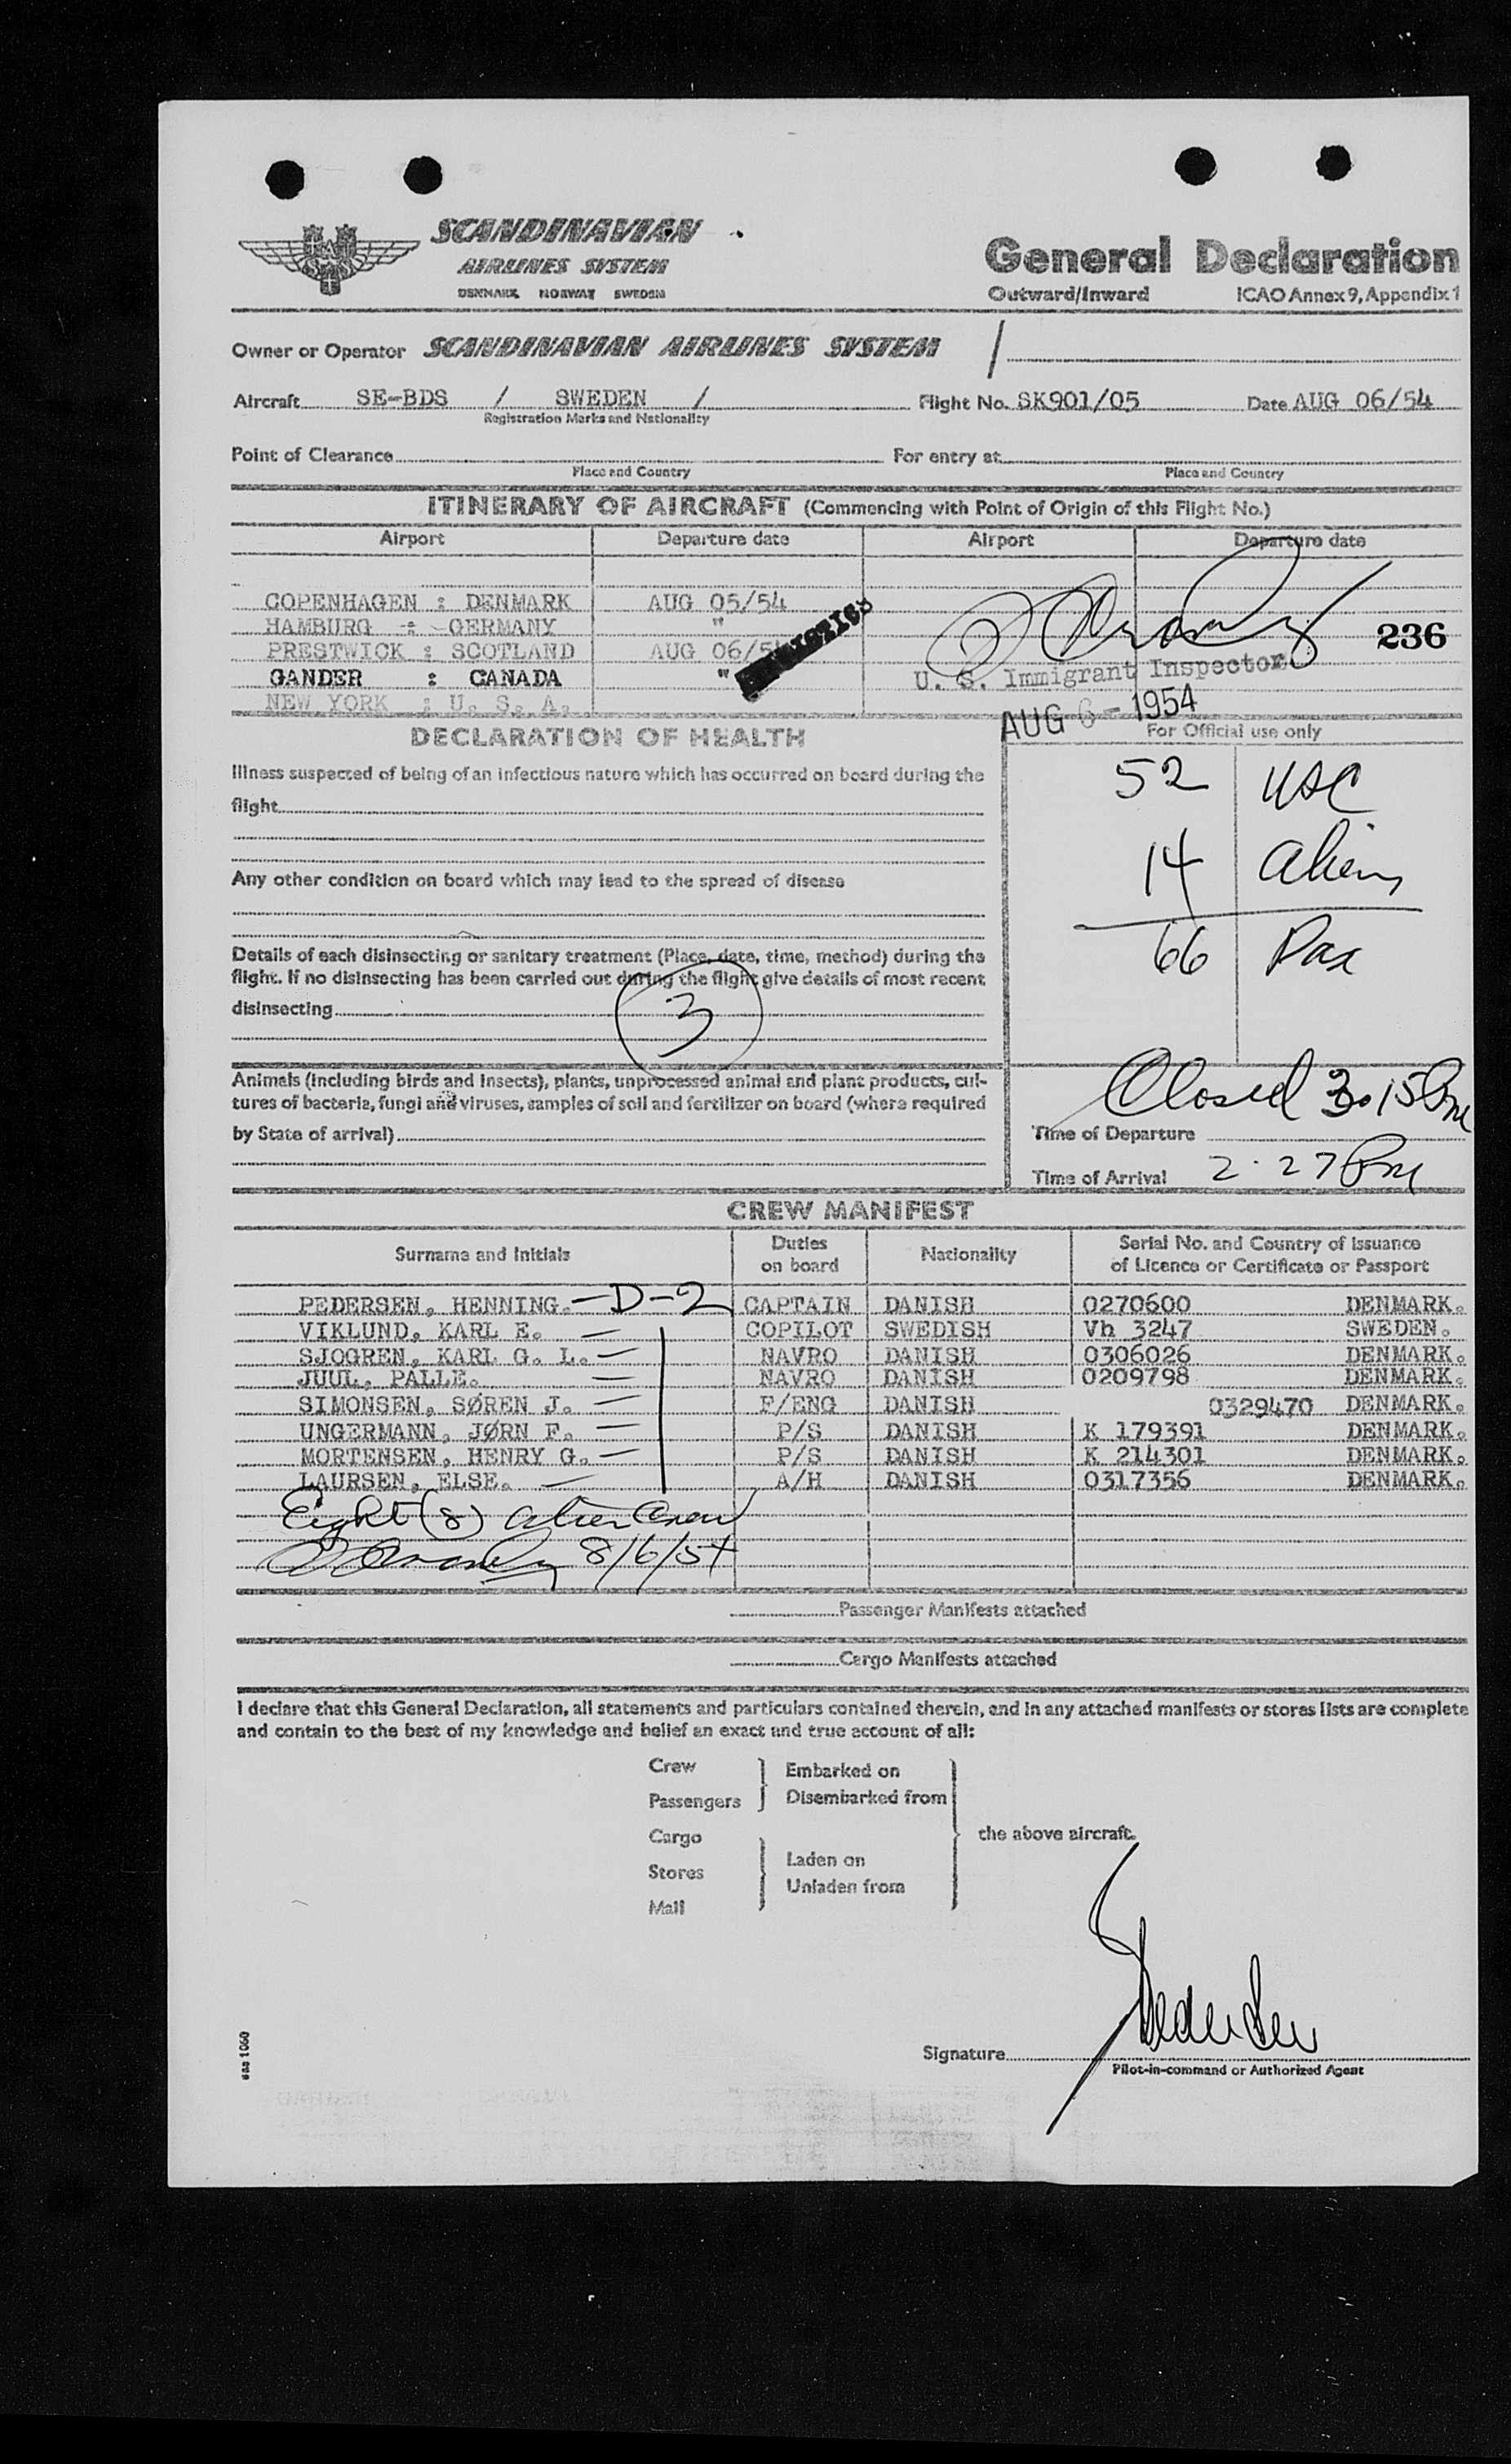 SCANDINAVIAN
AIRLINES SYSTEM
DENMARK NORWAY SWEDEN
General Declaration
Outward/Inward ICAO Annex 9, Appendix 1
Owner or Operator SCANDINAVIAN AIRLINES SYSTEM /
Aircraft SE-BDS / SWEDEN / Flight No. SK901/05 Date AUG 06/54
Registration Marks and Nationality
Point of Clearance For entry at
Place and Country Place and Country
ITINERARY OF AIRCRAFT (Commencing with Point of Origin of this Flight No.)
Airport Departure date Airport Departure date
COPENHAGEN : DENMARK AUG 05/54
HAMBURG : GERMANY "
PRESTWICK : SCOTLAND AUG 06/54
236
GANDER : CANADA "
STATISTICS
U. S. Immigrant Inspector
NEW YORK : U. S. A.
AUG 6 - 1954
DECLARATION OF HEALTH
For Official use only
Illness suspected of being of an infectious nature which has occurred on board during the
flight
52 USC
14 Aliens
66 Pax
Any other condition on board which may lead to the spread of disease
Details of each disinsecting or sanitary treatment (Place, date, time, method) during the
flight. If no disinsecting has been carried out during the flight give details of most recent
disinsecting
3
Animals (including birds and insects), plants, unprocessed animal and plant products, cul-
tures of bacteria, fungi and viruses, samples of soil and fertilizer on board (where required
by State of arrival)
Closed 3.15 Pm
Time of Departure
Time of Arrival 2.27 Pm
CREW MANIFEST
Surname and Initials Duties on board Nationality Serial No. and Country of Issuance of Licence or Certificate or Passport
PEDERSEN, HENNING. -D-2 CAPTAIN DANISH 0270600 DENMARK.
VIKLUND, KARL E. COPILOT SWEDISH Vh 3247 SWEDEN.
SJOGREN, KARL G. L. NAVRO DANISH 0306026 DENMARK.
JUUL, PALLE. NAVRO DANISH 0209798 DENMARK.
SIMONSEN, SØREN J. F/ENG DANISH 0329470 DENMARK.
UNGERMANN, JØRN F. P/S DANISH K 179391 DENMARK.
MORTENSEN, HENRY G. P/S DANISH K 214301 DENMARK.
LAURSEN, ELSE. A/H DANISH 0317356 DENMARK.
Eight (8) alien Crew
8/6/54
Passenger Manifests attached
Cargo Manifests attached
I declare that this General Declaration, all statements and particulars contained therein, and in any attached manifests or stores lists are complete
and contain to the best of my knowledge and belief an exact and true account of all:
Crew Embarked on
Passengers Disembarked from
Cargo the above aircraft.
Stores Laden on
Unladen from
Mail
Pedersen
Signature
Pilot-in-command or Authorized Agent
sas 1060